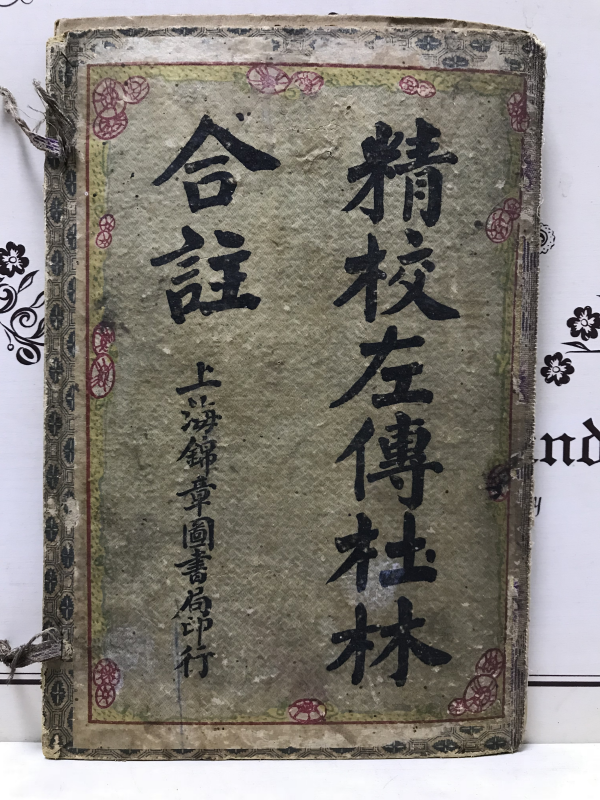 精校左傳杜林
合註
上海錦章圖書局印行
nd